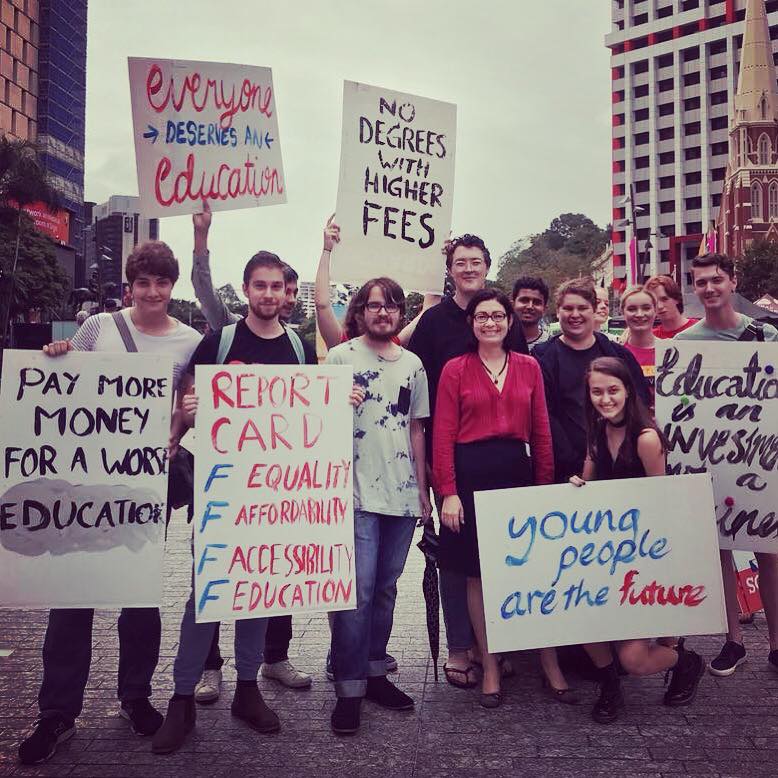 everyone
→ DESERVES AN ←
education
NO
DEGREES
WITH
HIGHER
FEES
PAY MORE
MONEY
FOR A WORSE
EDUCATION
REPORT
CARD
F EQUALITY
F AFFORDABILITY
F ACCESSIBILITY
F EDUCATION
young
people
are the future
Educatio
is an
INVESTM
a